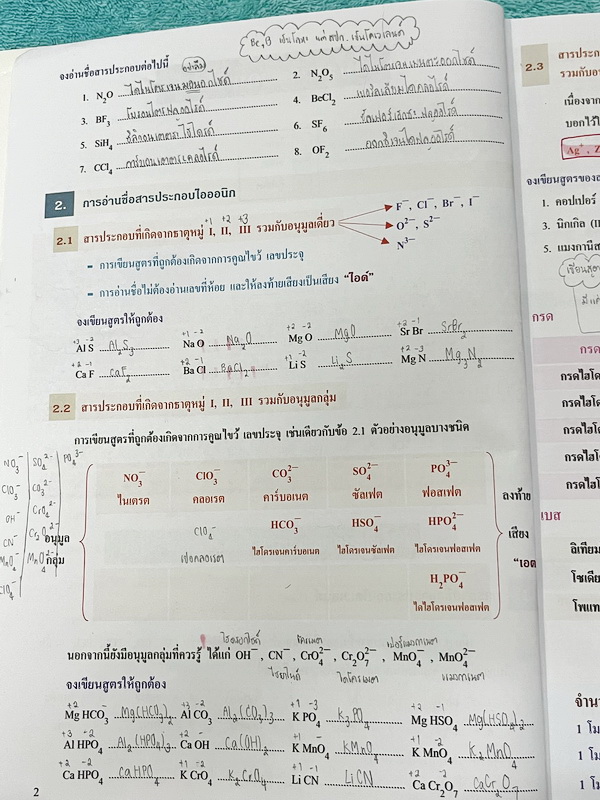 Be, B เป็นโลหะ แต่สปก. เป็นโคเวเลนต์
จงอ่านชื่อสารประกอบต่อไปนี้
1. N₂O ไดไนโตรเจนมอนอกไซด์
2. N₂O₅ ไดไนโตรเจนเพนตะออกไซด์
3. BF₃ โบรอนไตรฟลูออไรด์
4. BeCl₂ เบอริลเลียมไดคลอไรด์
5. SiH₄ ซิลิคอนเตตระไฮไดรด์
6. SF₆ ซัลเฟอร์เฮกซะฟลูออไรด์
7. CCl₄ คาร์บอนเตตระคลอไรด์
8. OF₂ ออกซิเจนไดฟลูออไรด์
2. การอ่านชื่อสารประกอบไอออนิก
+1 +2 +3
2.1 สารประกอบที่เกิดจากธาตุหมู่ I, II, III รวมกับอนุมูลเดี่ยว
F⁻, Cl⁻, Br⁻, I⁻
O²⁻, S²⁻
N³⁻
- การเขียนสูตรที่ถูกต้องเกิดจากการคูณไขว้ เลขประจุ
- การอ่านชื่อไม่ต้องอ่านเลขที่ห้อย และให้ลงท้ายเสียงเป็นเสียง "ไอด์"
จงเขียนสูตรให้ถูกต้อง
+3 -2 +1 -2 +2 -2 +2 -1
Al S Al₂S₃ Na O Na₂O Mg O MgO Sr Br SrBr₂
+2 -1 +2 -1 +1 -2 +2 -3
Ca F CaF₂ Ba Cl BaCl₂ Li S Li₂S Mg N Mg₃N₂
2.2 สารประกอบที่เกิดจากธาตุหมู่ I, II, III รวมกับอนุมูลกลุ่ม
การเขียนสูตรที่ถูกต้องเกิดจากการคูณไขว้ เลขประจุ เช่นเดียวกับข้อ 2.1 ตัวอย่างอนุมูลบางชนิด
NO₃⁻ SO₄²⁻ PO₄³⁻
ClO₃⁻ CO₃²⁻
OH⁻ CrO₄²⁻
CN⁻ Cr₂O₇²⁻
MnO₄⁻ MnO₄²⁻
ClO₄⁻
อนุมูล
กลุ่ม
NO₃⁻ ClO₃⁻ CO₃²⁻ SO₄²⁻ PO₄³⁻
ไนเตรต คลอเรต คาร์บอเนต ซัลเฟต ฟอสเฟต
ClO₄⁻ HCO₃⁻ HSO₄⁻ HPO₄²⁻
เปอคลอเรต ไฮโดรเจนคาร์บอเนต ไฮโดรเจนซัลเฟต ไฮโดรเจนฟอสเฟต
H₂PO₄⁻
ไดไฮโดรเจนฟอสเฟต
ลงท้าย
เสียง
"เอต
ไฮดรอกไซด์ โครเมต เปอร์แมงกาเนต
นอกจากนี้ยังมีอนุมูลกลุ่มที่ควรรู้ ได้แก่ OH⁻, CN⁻, CrO₄²⁻, Cr₂O₇²⁻, MnO₄⁻, MnO₄²⁻
ไซยาไนด์ ไดโครเมต แมงกาเนต
จงเขียนสูตรให้ถูกต้อง
Mg HCO₃⁻ Mg(HCO₃)₂ Al CO₃ Al₂(CO₃)₃ K PO₄ K₃PO₄ Mg HSO₄ Mg(HSO₄)₂
Al HPO₄ Al₂(HPO₄)₃ Ca OH Ca(OH)₂ K MnO₄ KMnO₄ K MnO₄ K₂MnO₄
Ca HPO₄ CaHPO₄ K CrO₄ K₂CrO₄ Li CN LiCN Ca Cr₂O₇ CaCr₂O₇
2
2.3 สารประก
รวมกับอ
เนื่องจาก
บอกไว้ใ
Ag⁺, Z
จงเขียนสูตรของส
1. คอปเปอร์
3. นิกเกิล (II
5. แมงกานีส
กรด
กรด
กรดไฮโ
กรดไฮโด
กรดไฮโด
กรดไฮโ
กรดไฮโด
เบส
ลิเทียม
โซเดีย
โพแท
จำนว
1 โม
1 โม
1 โม